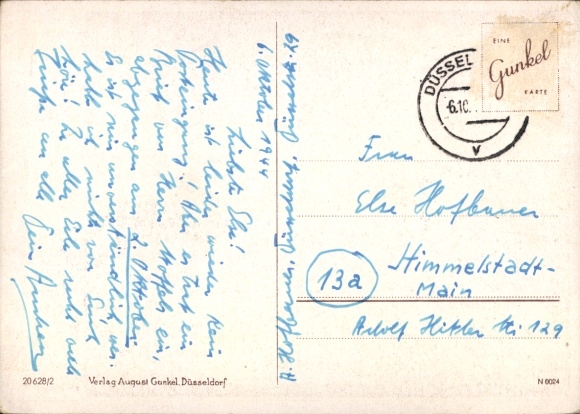 6. Oktober 1944
Liebste Else!
Heute ist leider wieder kein
Posteingang! Aber es traf ein
Brief von Herrn Stoffels ein,
abgegangen am 2. Oktober.
Es ist mir unverständlich, wes-
halb ich nichts von Euch
höre! In aller Eile recht viele
Grüße an alle
Dein
Hofbauer, Düsseldorf,
DÜSSEL
6.10.
V
EINE
Gunkel
KARTE
Frau
Else Hofbauer
13a
Himmelstadt-
Main
Adolf Hitler Str 129
20628/2 Verlag August Gunkel, Düsseldorf
N 6024